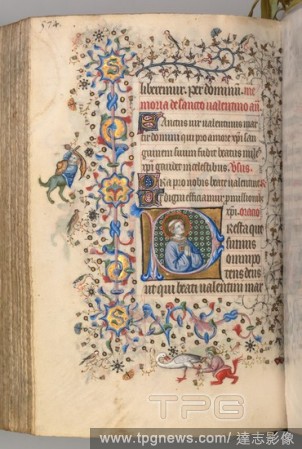 574.
liberemur. Per dominū. me
moria de sancto valentino añ.
Sanctus vir valentinus mar
tir domini qui pro amore xp̄i san
guinem suum fudit
xp̄i gaudet in celestibus. Vſus.
Ora pro nobis beate valentine
digni efficiamur promiſſionib
xp̄i. oratio
Presta que
sumus
omnipo
tens deus
ut qui beati valentini mar
TPG
www.tpgnews.com/達志影像